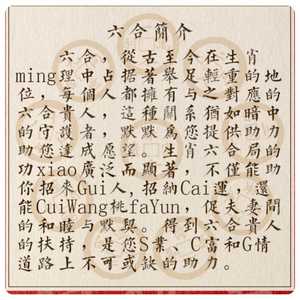 六合簡介
六合，從古至今在生肖
ming理中占據著舉足輕重的地
位，每個人都擁有與之對應的
六合貴人，這種關系猶如供中
的守護者，默默爲您提供暗助
助您達成愿望。生肖六合局的
功xiao廣泛而顯著，不僅能助力
你招來Gui人，招納Cai運，還
能CuiWang桃faYun，促夫妻間
的和睦与默契。得到六合貴人
的扶持，是您S業、C富和G情
道路上不可或缺的助力。